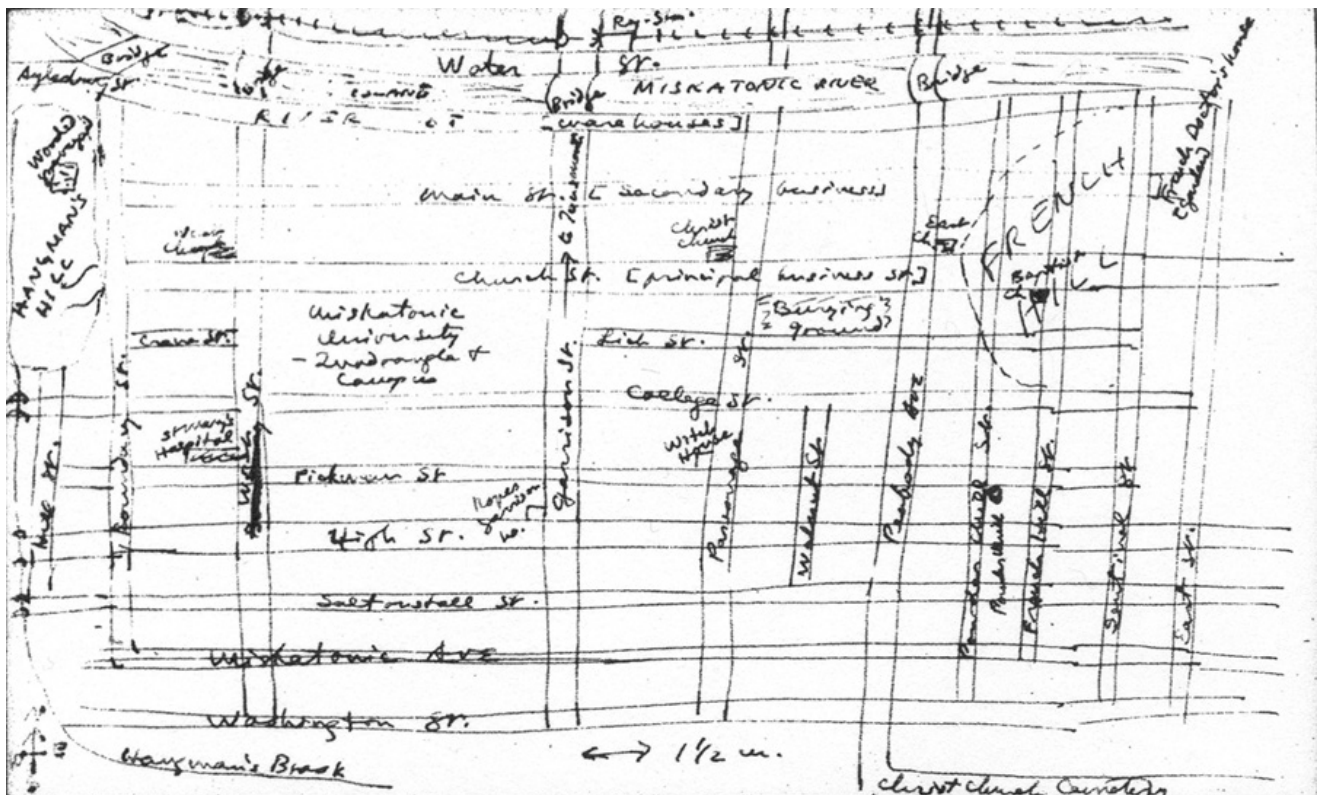 Ry. Sta.
Bridge
Water St.
Aylesbury St.
MISKATONIC RIVER
Bridge
Bridge
RIVER ST.
[warehouses]
Wooded
Graveyard
HANGMAN'S
HILL
Main St. [Secondary business]
Christ
Church
East
Ch.
FRENCH
HILL
French Doctor's house
[garden]
Church St. [principal business St.]
Baptist
Ch.
Miskatonic
University
- Quadrangle &
Campus
[Burying
ground]
Crane St.
Lich St.
College St.
St Mary's
Hospital
Witch
House
Pickman St
High St.
Saltonstall St.
Miskatonic Ave
Washington St.
Hangman's Brook
Hill St.
Boundary St.
West St.
Garrison St.
Parsonage St.
Walnut St.
Peabody Ave
Powder Mill St.
Powder Mill
French Hill St.
Sentinel St
East St.
1½ m.
Christ Church Cemetery